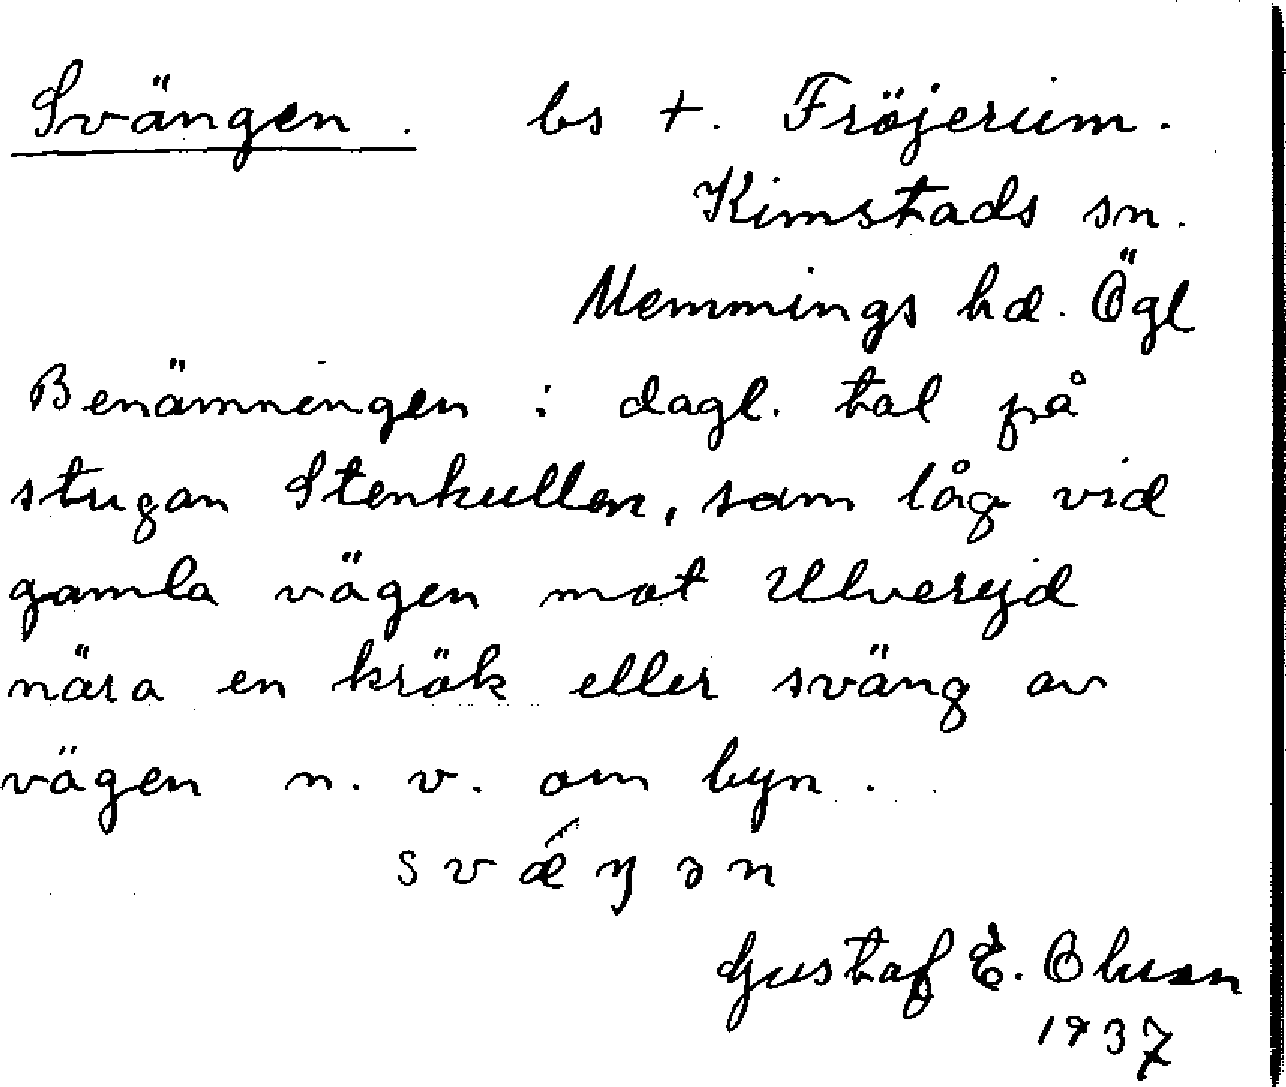 Svängen. bs +. Fröjerum.
Kimstads sn.
Memmings hd. Ögl
Benämningen i dagl. tal på
stugan Stenkullen, som låg vid
gamla vägen mot Ulveryd
nära en krök eller sväng av
vägen n. v. om byn.
svǽŋən
Gustaf E. Olsson
1937